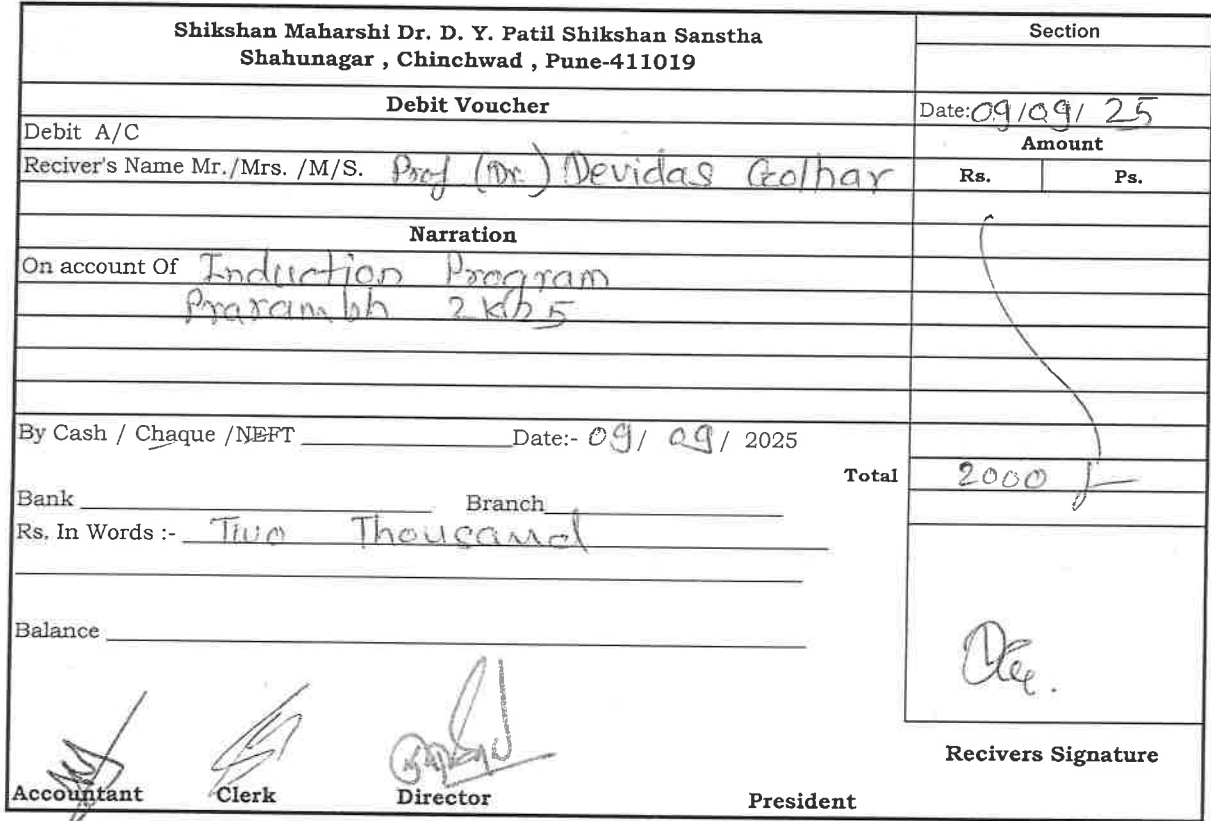 Shikshan Maharshi Dr. D. Y. Patil Shikshan Sanstha
Shahunagar , Chinchwad , Pune-411019
Section
Debit Voucher
Date:09/09/ 25
Debit A/C
Amount
Reciver's Name Mr./Mrs. /M/S. Prof (Dr.) Devidas Golhar
Rs. Ps.
Narration
On account Of Induction Program
Prarambh 2k25
By Cash / Chaque /NEFT Date:- 09/ 09/ 2025
Total 2000 /-
Bank Branch
Rs. In Words :- Two Thousand
Balance
Recivers Signature
Accountant Clerk Director President